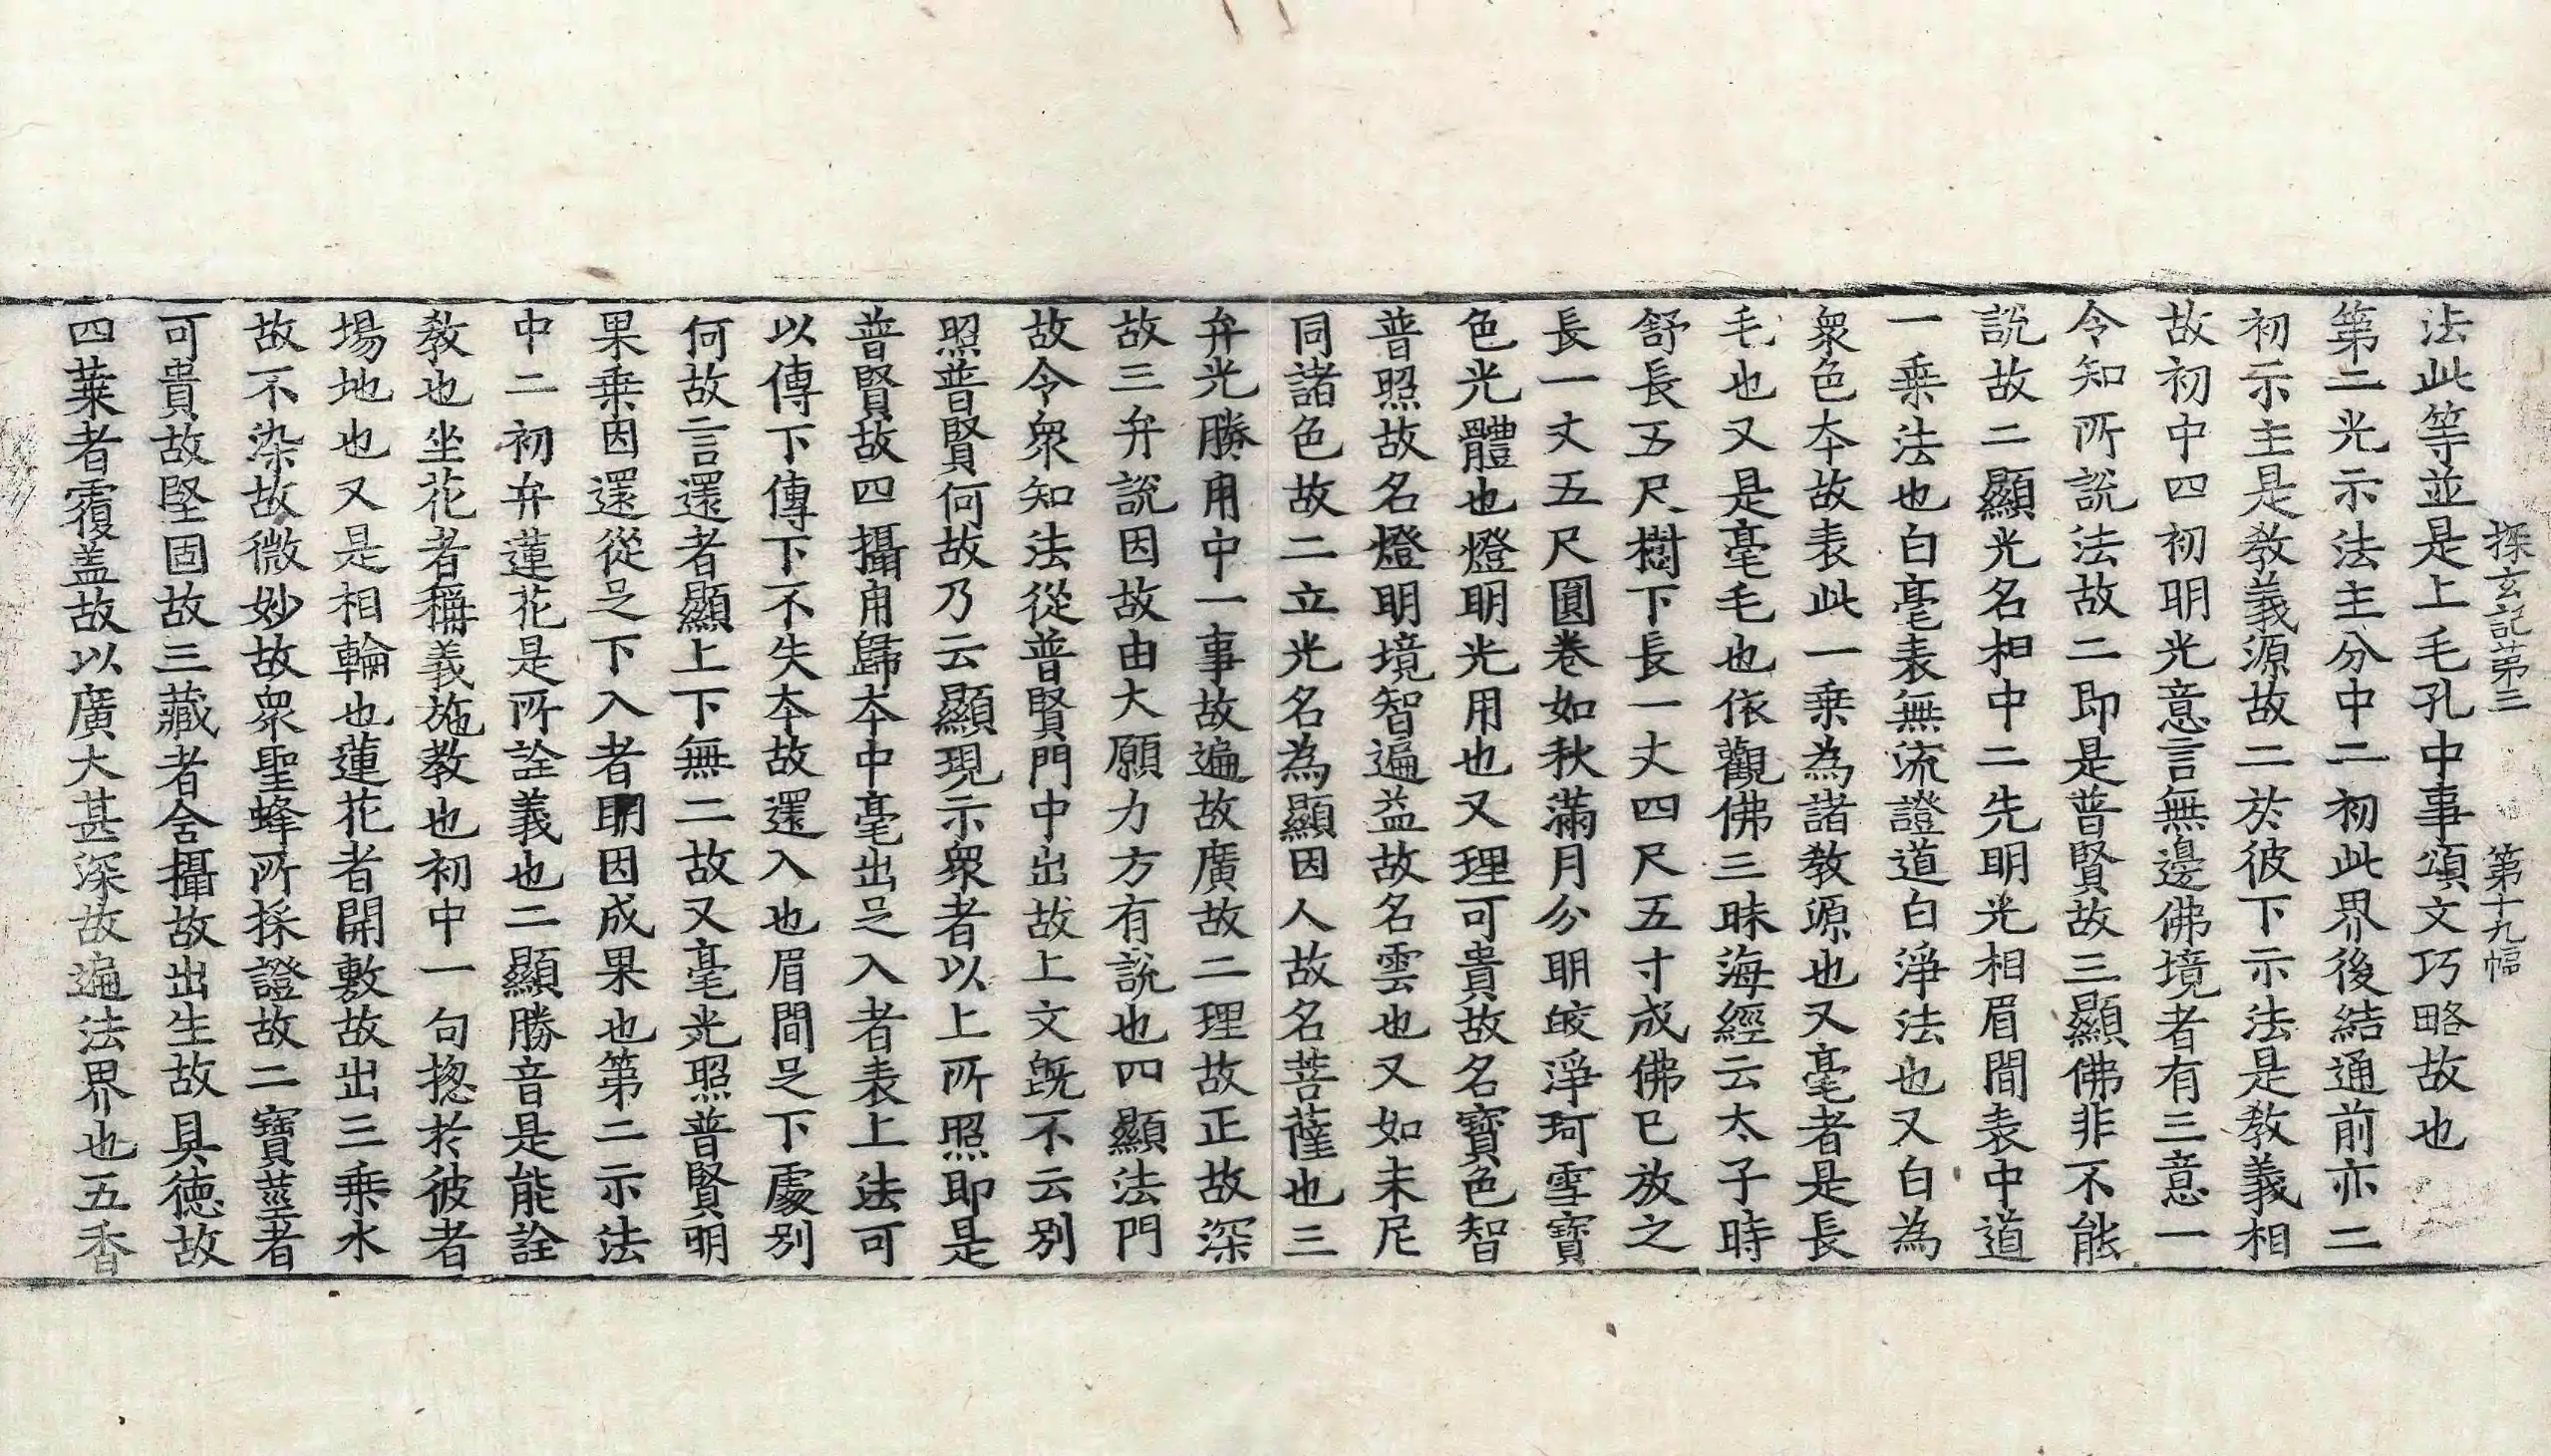 探玄記第三　第十九幅
法此等並是上毛孔中事頌文巧略故也
第二光示法主分中二初此界後結通前亦二
初示主是教義源故二於彼下示法是教義相
故初中四初明光意言無邊佛境者有三意一
令知所說法故二即是普賢故三顯佛非不能
說故二顯光名相中二先明光相眉間表中道
一乗法也白毫表無流證道白淨法也又白為
衆色夲故表此一乗為諸教源也又毫者是長
毛也又是毫毛也依觀佛三昧海經云太子時
舒長五尺樹下長一丈四尺五寸成佛已放之
長一丈五尺圓卷如秋滿月分明皎淨珂雪寶
色光體也燈明光用也又理可貴故名寶色智
普照故名燈明境智遍益故名雲也又如末尼
同諸色故二立光名為顯因人故名菩薩也三
弁光勝用中一事故遍故廣故二理故正故深
故三弁說因故由大願力方有說也四顯法門
故令衆知法從普賢門中出故上文旣不云別
照普賢何故乃云顯現示衆者以上所照即是
普賢故四攝用歸夲中毫出足入者表上法可
以傳下傳下不失夲故還入也眉間足下處別
何故言還者顯上下無二故又毫光照普賢明
果乗因還從足下入者明因成果也第二示法
中二初弁蓮花是所詮義也二顯勝音是能詮
教也坐花者稱義施教也初中一句揔於彼者
場地也又是相輪也蓮花者開敷故出三乗水
故不染故微妙故衆聖蜂所採證故二寶莖者
可貴故堅固故三藏者含攝故出生故具徳故
四葉者覆盖故以廣大甚深故遍法界也五香